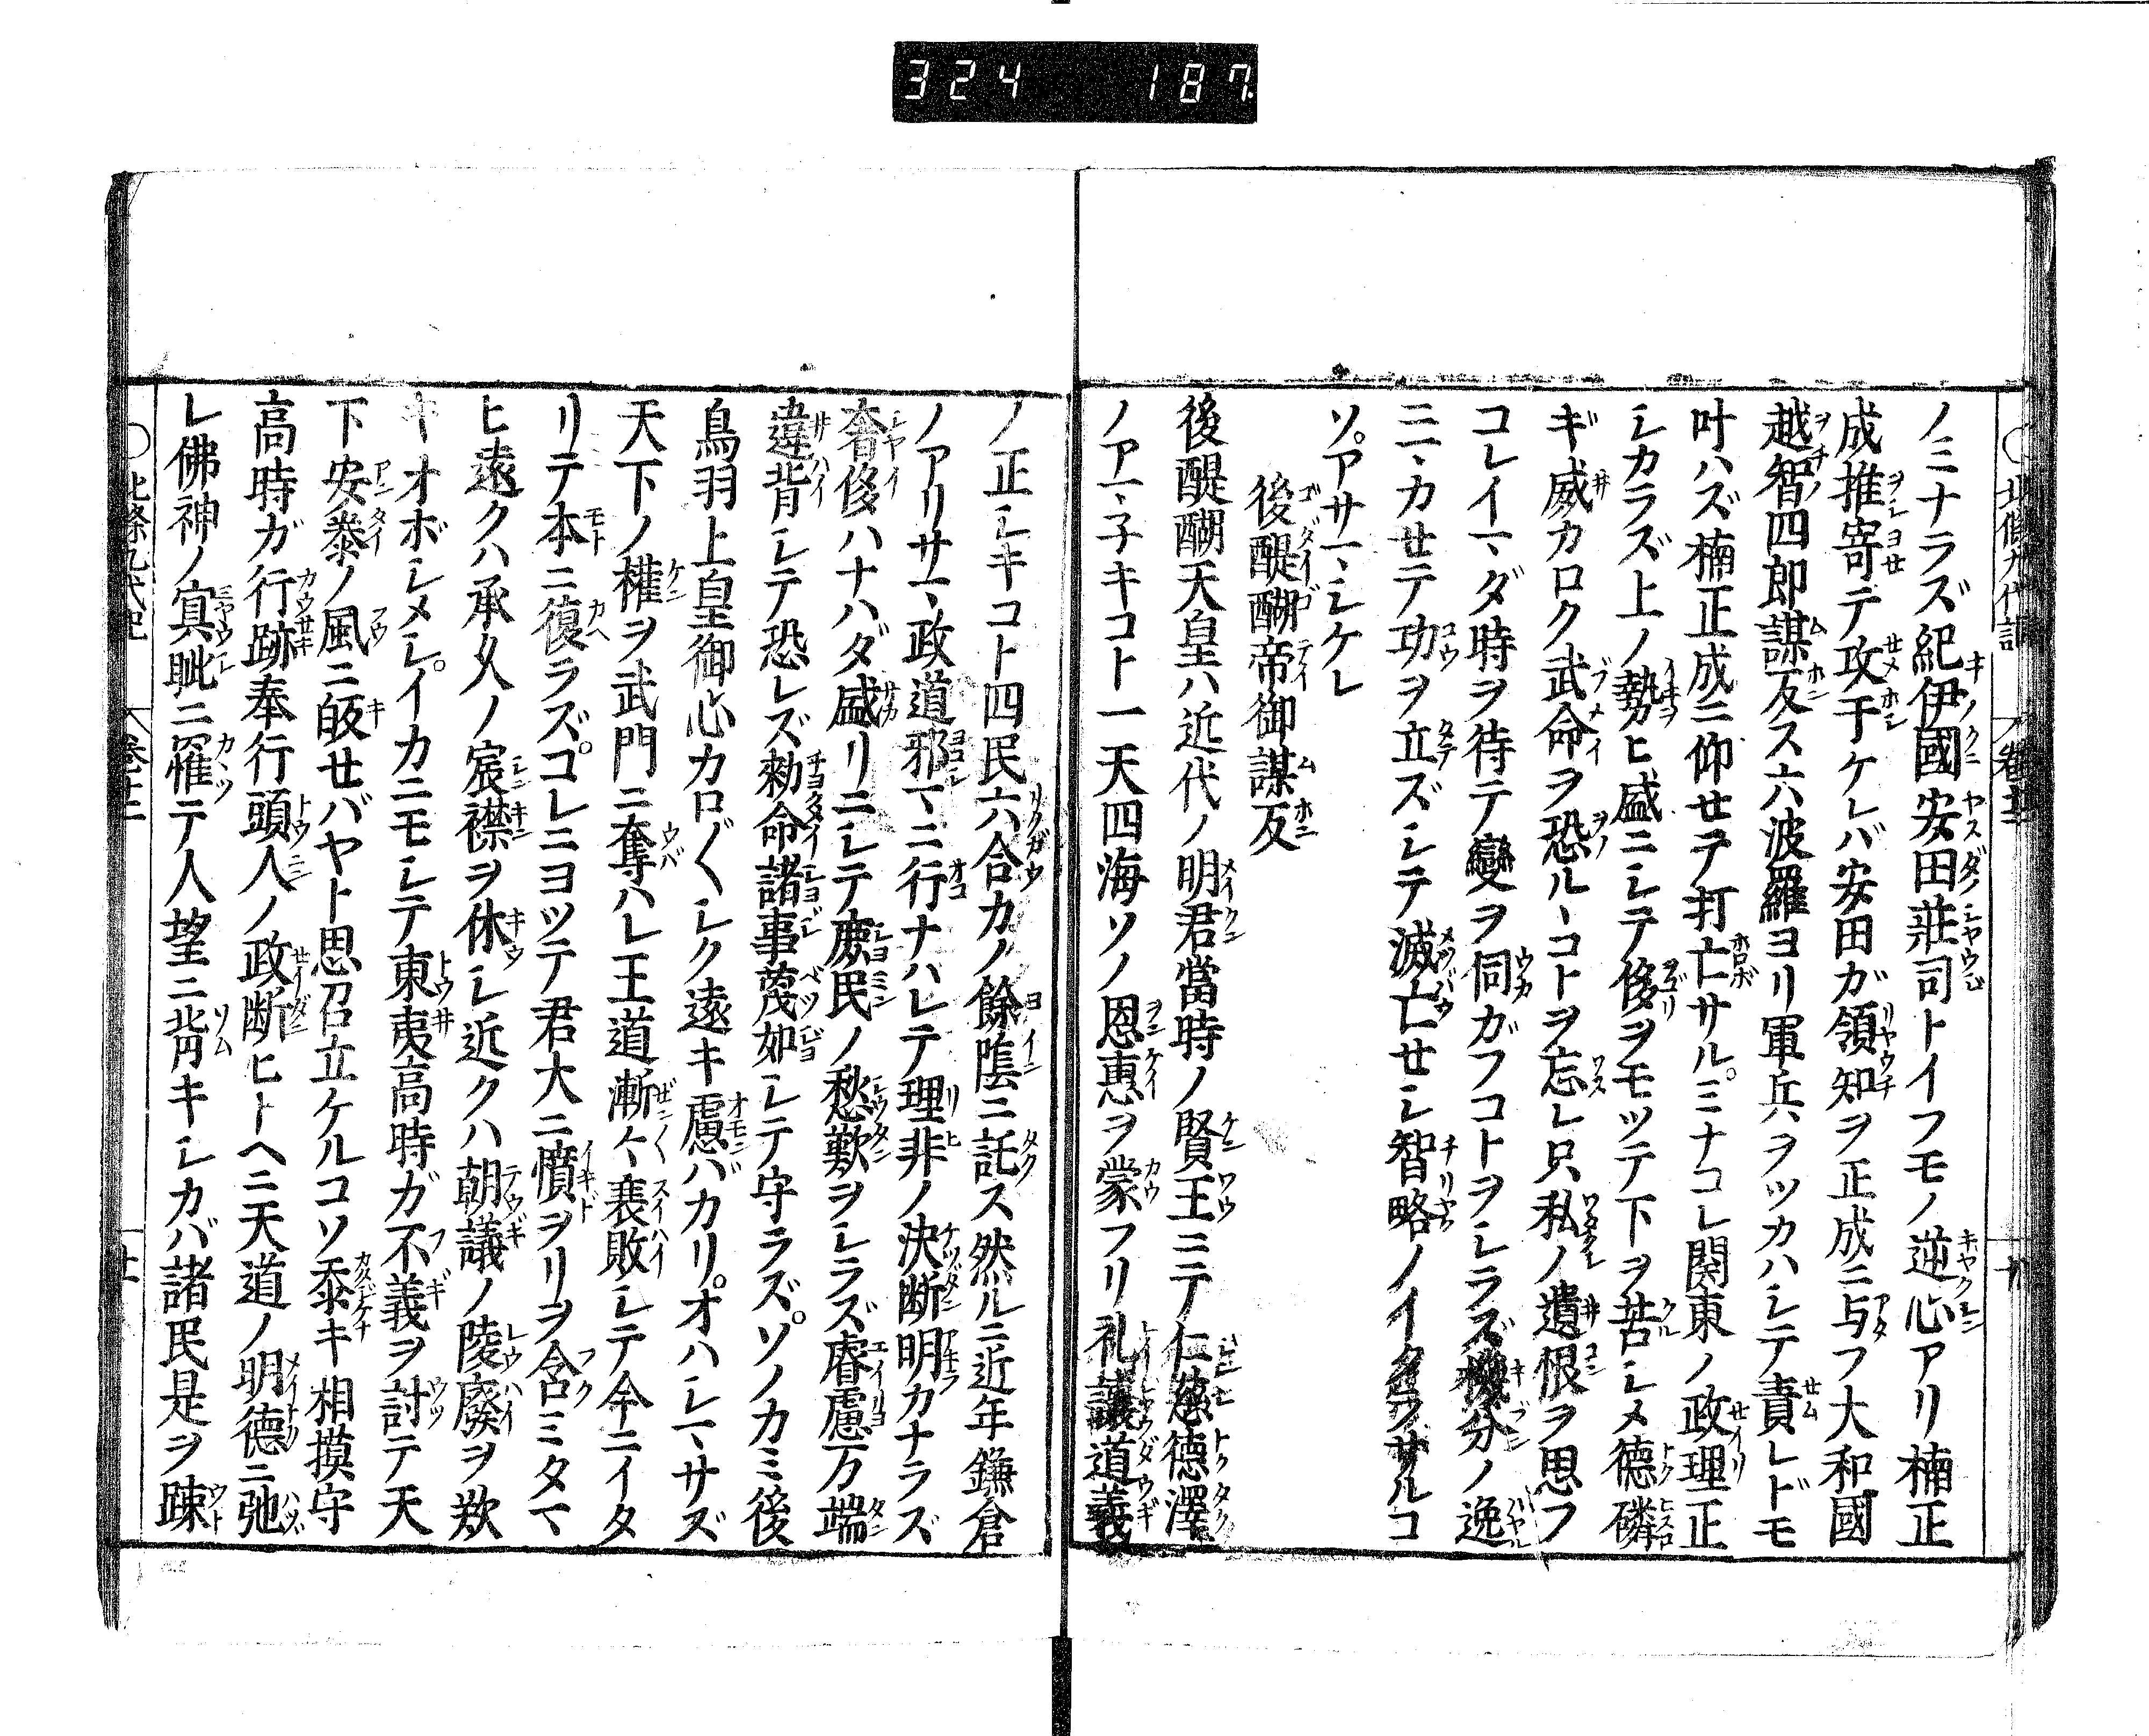 324 187
ノミナラズ紀伊國安田莊司トイフモノ逆心アリ楠正
成推寄テ攻干ケレバ安田ガ領知ヲ正成ニ与フ大和國
越智四郎謀反ス六波羅ヨリ軍兵ヲツカハシテ責レドモ
叶ハズ楠正成ニ仰セテ打亡サル。ミナコレ関東ノ政理正
シカラズ上ノ勢ヒ盛ニシテ侈ヲモツテ下ヲ苦シメ徳磷
ギ威カロク武命ヲ恐ルヽコトヲ忘レ只私ノ遺恨ヲ思フ
コレイマダ時ヲ待テ變ヲ伺ガフコトヲシラズ機分ノ逸
ニマカセテ功ヲ立ズシテ滅亡セシ智略ノイタラザルコ
ソ。アサマシケレ
後醍醐帝御謀反
後醍醐天皇ハ近代ノ明君當時ノ賢王ニテ仁慈德澤
ノアマ子キコト一天四海ソノ恩惠ヲ蒙フリ礼讓道義
ノ正シキコト四民六合カノ餘蔭ニ託ス然ルニ近年鎌倉
ノアリサマ政道邪マニ行ナハレテ理非ノ決断明カナラズ
奢侈ハナハダ盛リニシテ庶民ノ愁歎ヲシラズ睿慮万端
違背シテ恐レズ勅命諸事蔑如シテ守ラズ。ソノカミ後
鳥羽上皇御心カロ〲シク遠キ慮バカリ。オハシマサズ
天下ノ權ヲ武門ニ奪ハレ王道漸々衰敗シテ今ニイタ
リテ本ニ復ラズ。コレニヨツテ君大ニ憤ヲリヲ含ミタマ
ヒ遠クハ承久ノ宸襟ヲ休シ近クハ朝議ノ陵廢ヲ歎
キオボシメシ。イカニモシテ東夷高時ガ不義ヲ討テ天
下安泰ノ風ニ皈セバヤト思召立ケルコソ忝キ相摸守
高時ガ行跡奉行頭人ノ政断ヒトヘニ天道ノ明德ニ弛
レ佛神ノ冥眦ニ罹テ人望ニ背キシカバ諸民是ヲ疎